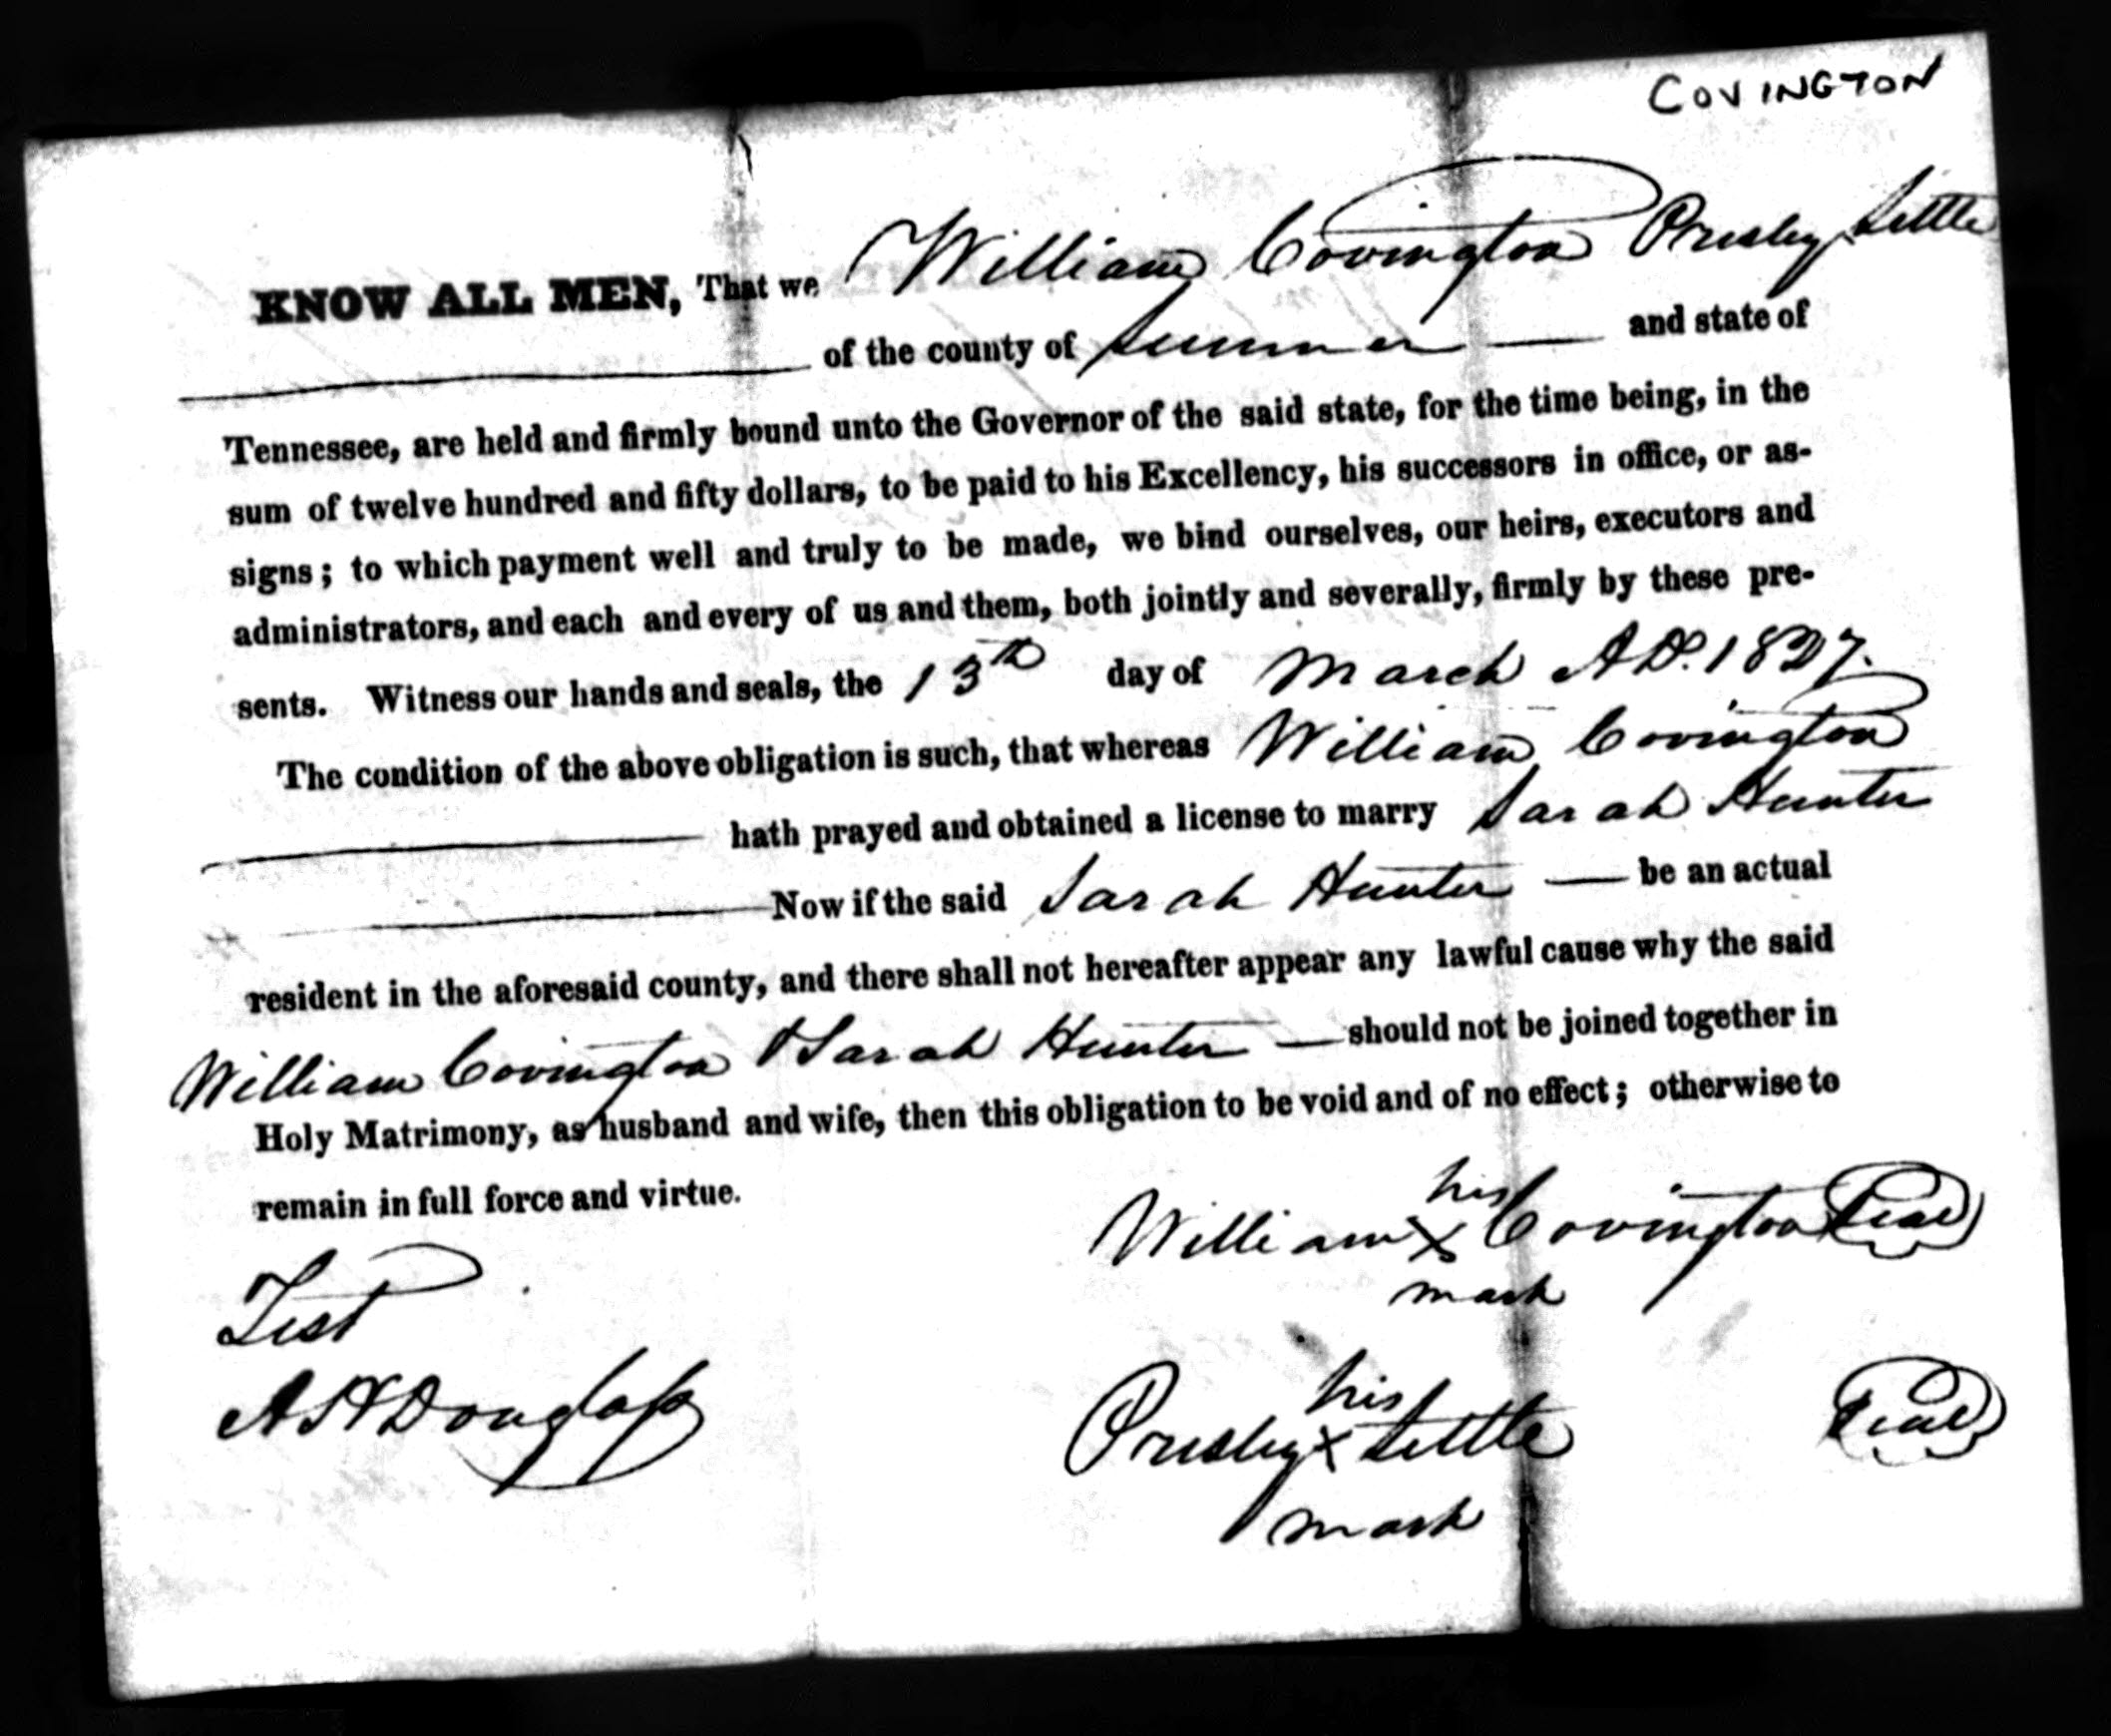 COVINGTON
KNOW ALL MEN, That we William Covington Presley Settle
of the county of Sumner and state of
Tennessee, are held and firmly bound unto the Governor of the said state, for the time being, in the
sum of twelve hundred and fifty dollars, to be paid to his Excellency, his successors in office, or as-
signs; to which payment well and truly to be made, we bind ourselves, our heirs, executors and
administrators, and each and every of us and them, both jointly and severally, firmly by these pre-
sents. Witness our hands and seals, the 13th day of March AD. 1827.
The condition of the above obligation is such, that whereas William Covington
hath prayed and obtained a license to marry Sarah Hunter
Now if the said Sarah Hunter be an actual
resident in the aforesaid county, and there shall not hereafter appear any lawful cause why the said
William Covington & Sarah Hunter should not be joined together in
Holy Matrimony, as husband and wife, then this obligation to be void and of no effect; otherwise to
remain in full force and virtue.
his
William X Covington Seal
mark
Test
his
A H Douglass Presley X Settle Seal
mark